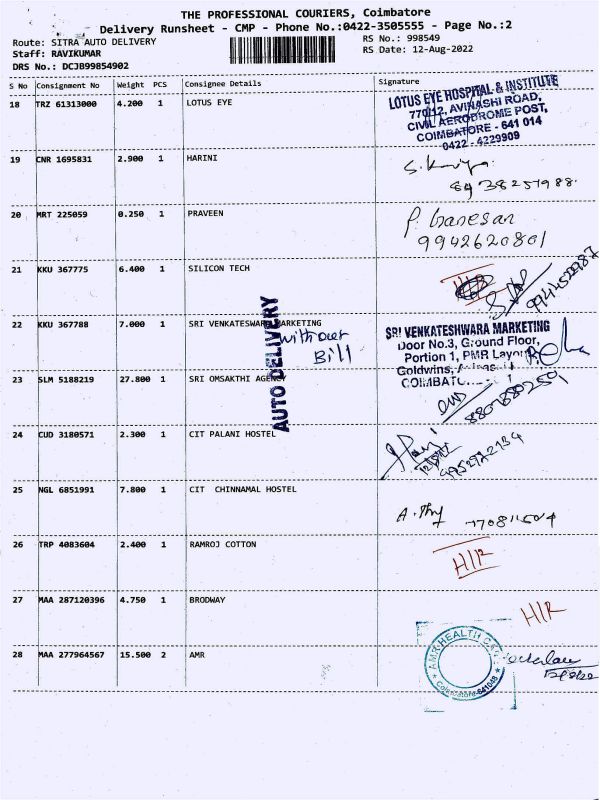 THE PROFESSIONAL COURIERS, Coimbatore
Delivery Runsheet - CMP - Phone No.:0422-3505555 - Page No.:2
Route: SITRA AUTO DELIVERY
RS No.: 998549
Staff: RAVIKUMAR
RS Date: 12-Aug-2022
DRS No.: DCJB99854902
S No Consignment No Weight PCS Consignee Details Signature
18 TRZ 61313000 4.200 1 LOTUS EYE
LOTUS EYE HOSPITAL & INSTITUTE
770/12, AVINASHI ROAD,
CIVIL AERODROME POST,
COIMBATORE - 641 014
0422 - 4229909
19 CNR 1695831 2.900 1 HARINI
8438251988
20 MRT 225059 0.250 1 PRAVEEN
P. Ganesan
9942620801
21 KKU 367775 6.400 1 SILICON TECH
22 KKU 367788 7.000 1 SRI VENKATESWARA MARKETING
without
Bill
AUTO DELIVERY
SRI VENKATESHWARA MARKETING
Door No.3, Ground Floor,
Portion 1, PMR Layout,
Goldwins,
23 SLM 5188219 27.800 1 SRI OMSAKTHI AGENCY
24 CUD 3180571 2.300 1 CIT PALANI HOSTEL
25 NGL 6851991 7.800 1 CIT CHINNAMAL HOSTEL
26 TRP 4083604 2.400 1 RAMROJ COTTON
H/R
27 MAA 287120396 4.750 1 BRODWAY
H/R
28 MAA 277964567 15.500 2 AMR
AMR HEALTH CARE
Coimbatore-641048